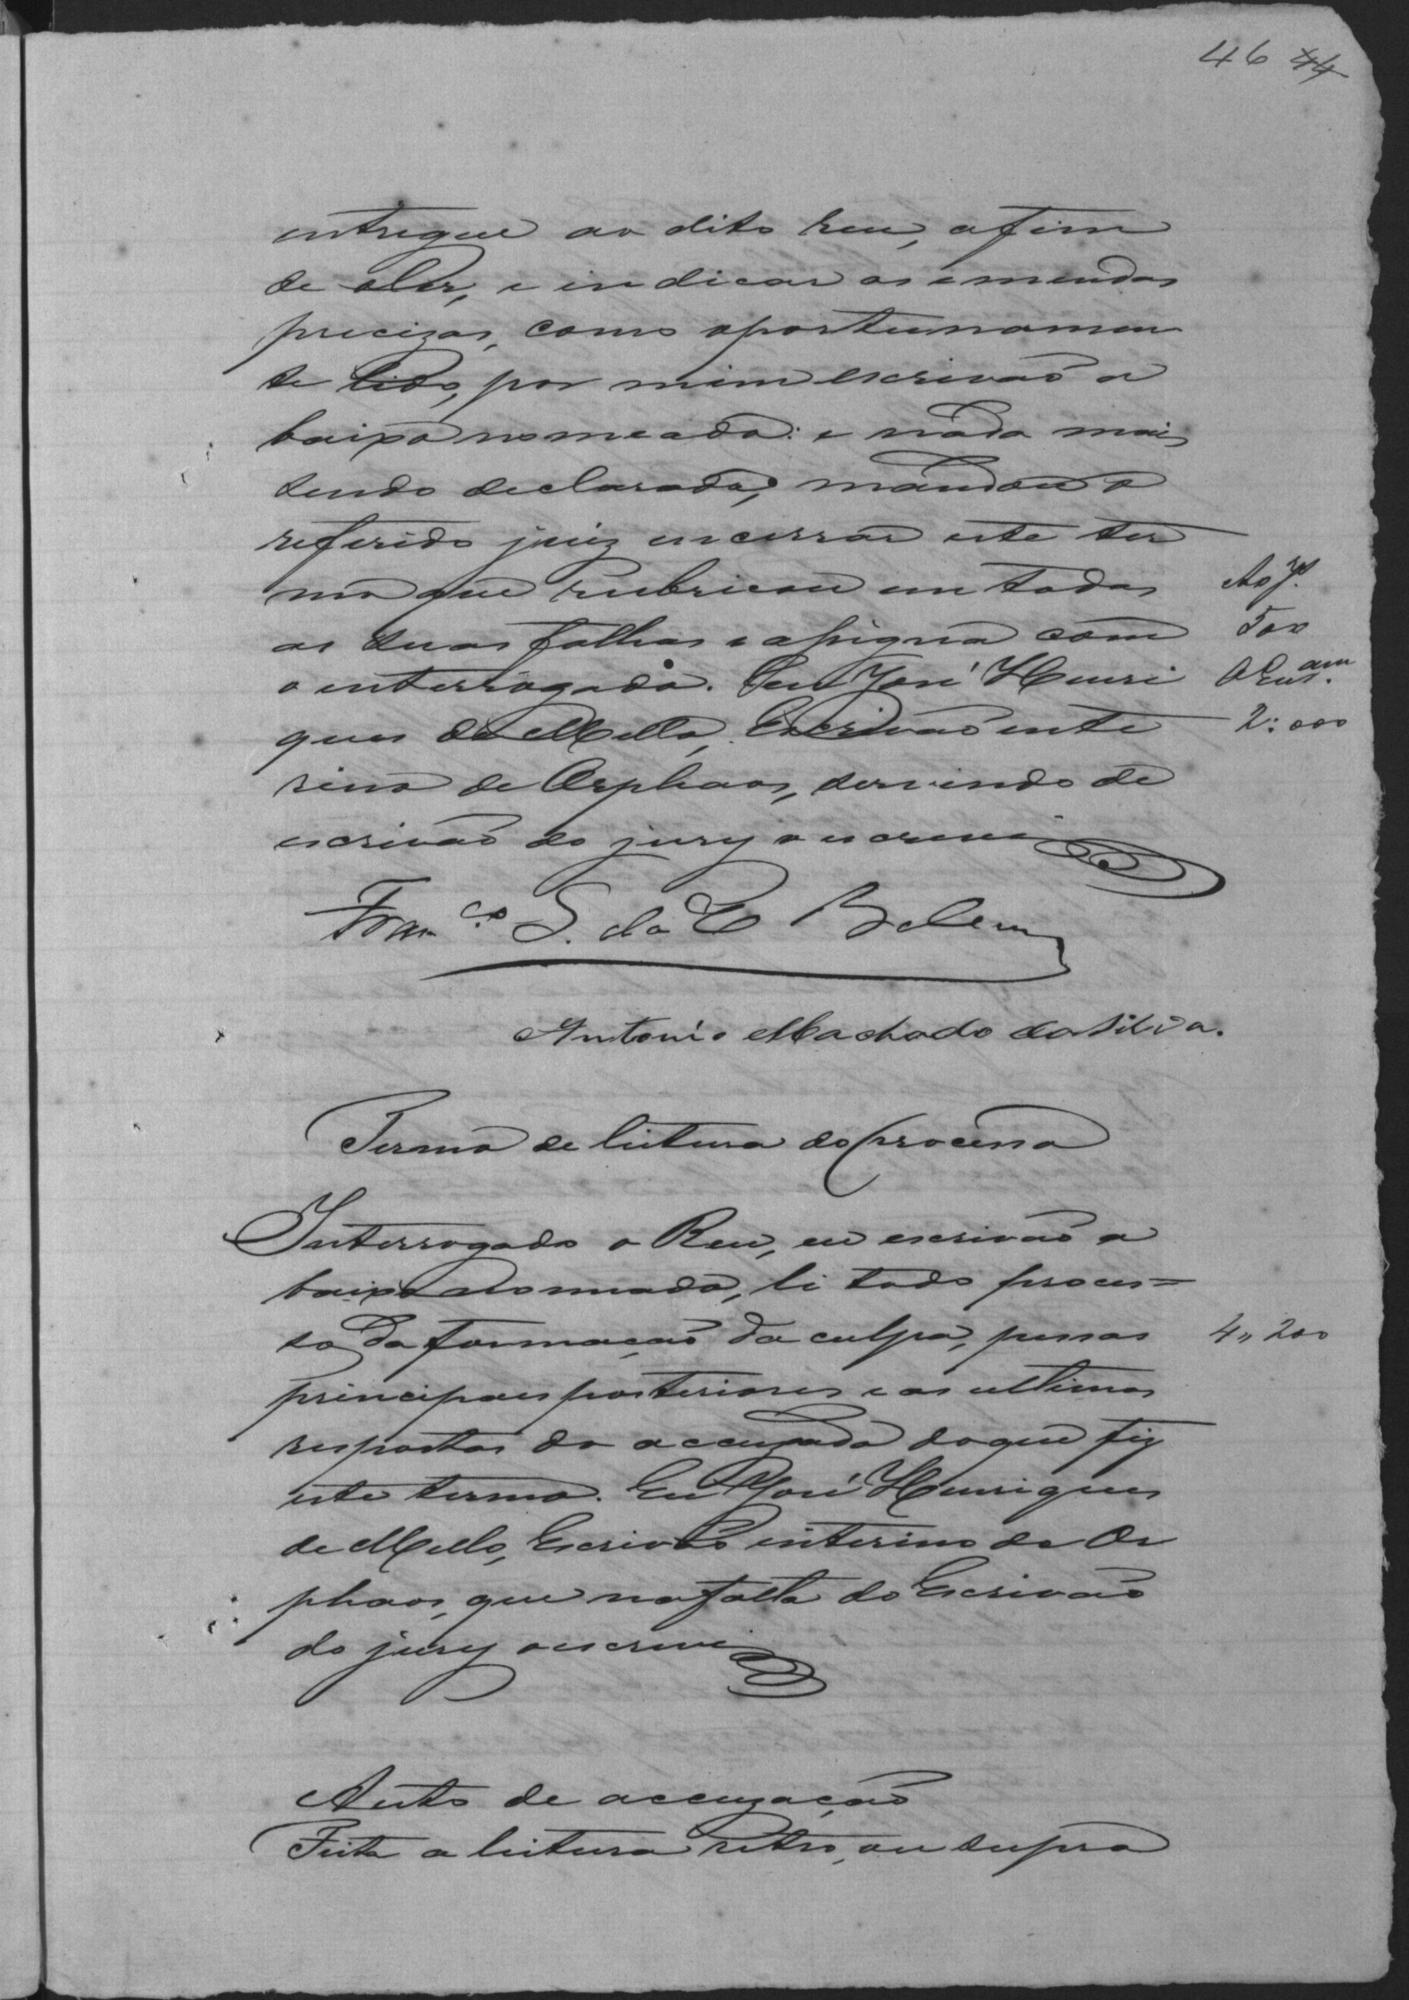 46 44
entregue ao dito reu, afim
de o ler, e indicar as emendas
precizas, como oportunamen
te lido, por mim escrivão a
baixo nomeado: e nada mais
sendo declarado, mandou o
referido juiz encerrar este ter
mo que rubricou em todas
as suas folhas e assigna com
o interrogado. Eu José Henri
ques de Mello, Escrivão inte
rino de Orphaos, servindo de
escrivão do jury o escrevi
Ao J.
500
2:000
Fran.co S. da C Belem
Antonio Machado da Silva.
Termo de leitura do processo
Interrogado o Reu, eu escrivão a
baixo nomeado, li todo proces=
so da formação da culpa, pessas
4,,200
principaes posteriores e as ultimas
respostas do accuzado do que fiz
este termo. Eu José Henriques
de Mello, Escrivão interino de Or
phaos, que na falta do Escrivão
do jury o escrevi
Auto de accuzação
Feita a leitura retro, ou supra